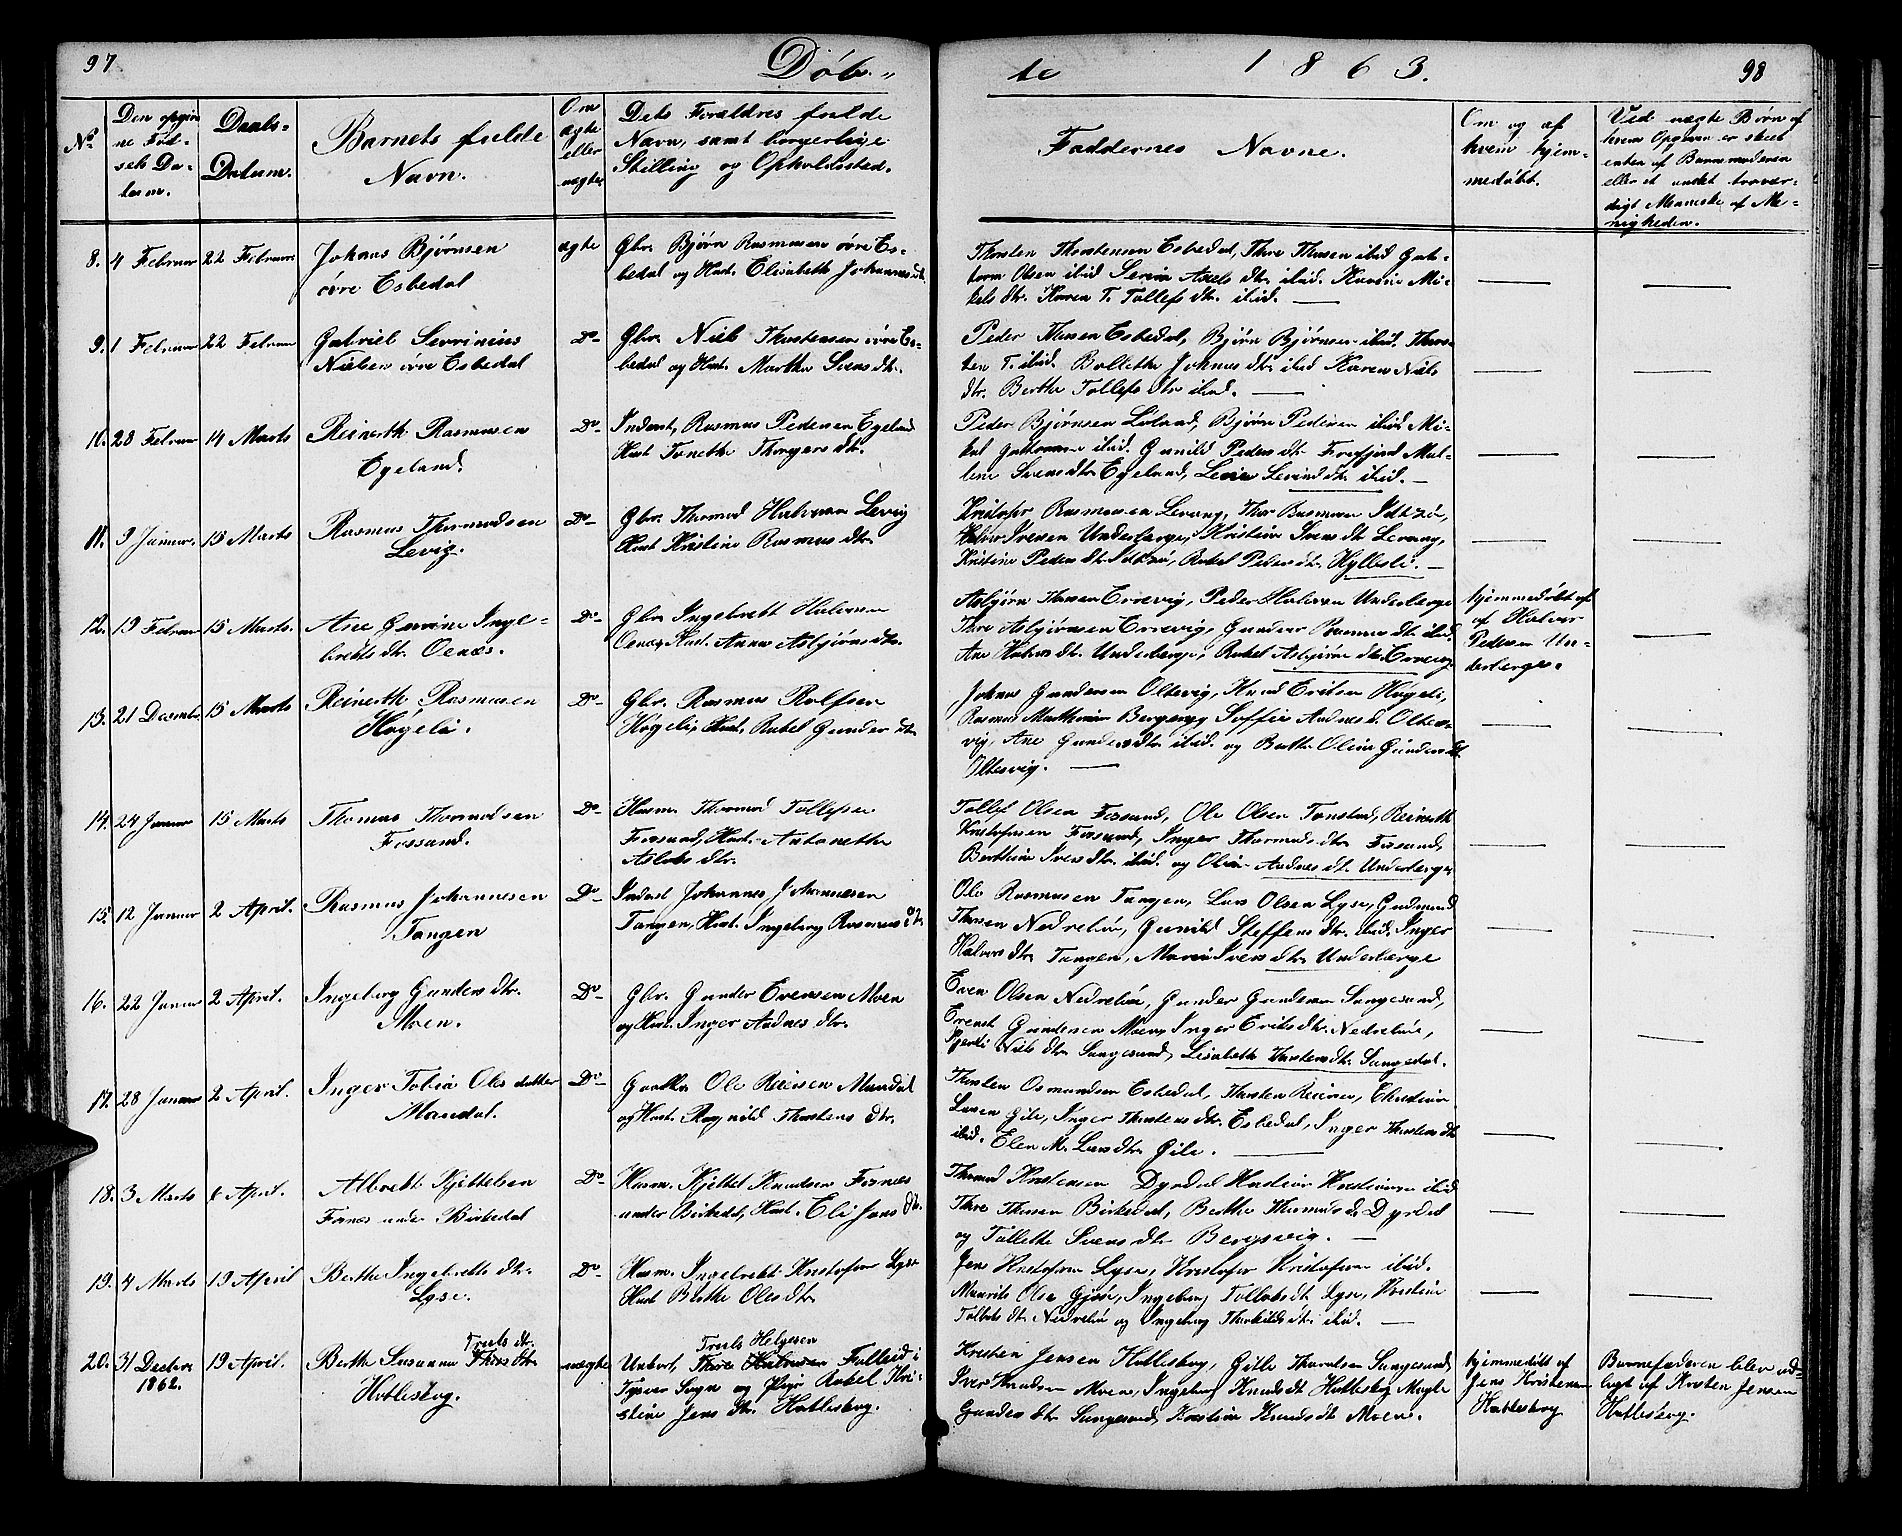 97
Døb-
te
1863.
98
No
Den opgiv
ne Fød-
sels Da-
tum.
Daabs-
Datum.
Barnets fulde
Navn.
Om
ægte
eller
uægte
Dets Forældres fulde
Navn, samt borgerlige
Stilling og Opholdssted.
Faddernes Navne.
Om og af
hvem hjem-
medøbt.
Ved uægte Børn af
hvem Opgaven er skeet
enten af Barnemoderen
eller et andet trovær-
digt Menneske af Me-
nigheden.
8. 4 Februar 22 Februar
Johans Bjørnsen
øvre Esbedal
ægte
Gbr. Bjørn Rasmusen øvre Es-
bedal og Hust. Elisabeth Johannesdtr
Thorsten Thorstensen Esbedal, Thore Thosen ibid Gut-
torm Olsen ibid Serina Axels dtr. ibid. Karine Mi-
kels dtr. Karen T. Tollefs dtr. ibid.
9. 1 Februar 22 Februar
Gabriel Serrinius
Nielsen øvre Esbedal
Do
Gbr. Niels Thorstensen øvre Es-
bedal og Hust. Marthe Svensdtr.
Peder Thosen Esbedal, Bjørn Bjørnsen ibid. Thors-
ten T. ibid. Bollethe Johnes dtr. ibid Karen Niels
dtr. Berthe Tollefs dtr ibid.
10. 28 Februar 14 Marts
Reinerth Rasmusen
Egeland.
Do
Inderst, Rasmus Pedersen Egeland
Hust Tonethe Thorgers dtr.
Peder Bjørnsen Løland, Bjørn Pedersen ibid. Mi-
kal Guttormsen ibid. Gunild Peders dtr. Frafjord Mal-
lene Svensdtr. Egeland, Serine Sevinds dtr. ibid.
11. 9 Januar. 15 Marts
Rasmus Thormodsen
Levig.
Do
Gbr. Thormod Halvorsen Levig
Hust Kristine Rasmus dtr.
Kristofer Rasmussen Levang, Thor Rasmusen
Iversen Underberge, Kristine Svens dtr Levang,
Kristine Peders dtr. Rakel Peders dtr. Hyllesli.
12. 19 Februar 15 Marts.
Ane Gurine Inge-
bretts dtr. Oenæs.
Do
Gbr Ingebrett Halvorsen
Oenæs, Hust. Anna Asbjørns dtr.
Asbjørn Thosen Errevig, Peder Halvorsen Underberge
Thore Asbjørnsen Errevig, Gunder Rasmus dtr ibid.
Ane Halvors dtr. Underberge, Rakel Asbjørns dtr. Errevig
hjemmedøbt af
af Halvor
Pedersen Un-
derberge.
13. 21 December 15 Marts
Reinerth Rasmusen
Høgeli.
Do
Gbr. Rasmus Rolfsen
Høgeli, Hust. Rakel Gunder dtr
Johans Gundersen Oltesvig, Knud Eriksen Høgeli,
Rasmus Mathiasen Bergevig Soffie Andnes d. Oltes-
vig, Ane Gunders dtr. ibid. og Berthe Oline Gunders dtr.
Oltesvig.
14. 24 Januar 15 Marts
Thomas Thormodsen
Fossand.
Do
Husm. Thormod Tollefsen
Forsand, Hust. Antonette
Aslaks dtr.
Tollef Olsen Forsand, Ole Olsen Tonstad, Reinerth
Kristofersen Forsand, Inger Thormods dtr. Forsand,
Berthine Ivers dtr. ibid. og Oline Andnes dt. Underberge
15. 12 Januar 2 April.
Rasmus Johannesen
Tangen
Do
Inderst Johannes Johannesen
Tangen, Hust. Ingeborg Rasmus dtr.
Ole Rasmusen Tangen, Lars Olsen Lyse, Gudmund
Thorsen Nedrelie, Gunild Steffens dtr. ibid. Inger
Halvors dtr. Tangen, Maren Ivers dtr. Underberge
16. 22 Januar 2 April.
Ingeborg Gunders dtr.
Moen.
Do
Gbr. Gunder Evensen Moen
og Hust. Inger Andnes dtr.
Even Olsen Nedrelie, Gunder Gundersen Sangesand,
Gundersen Moen, Inger Eriks dtr. Nedrelie,
Niels dtr Sangesand, Lisabeth Thorstens dtr. Sangesand.
17. 28 Januar 2 April.
Inger Tobia Oles datter
Mandal.
Do
Gaardbr. Ole Reiersen Mandal
og Hust. Ragnild Thorstens dtr.
Thorsten Osmundsen Esbedal, Thorsten Reiersen, Christian
Larsen Gile, Inger Thorstens dtr. Esbedal, Inger Thorstens dtr
ibid. Elen M. Lars dtr. Gile.
18. 3 Marts 6 April.
Albrekt Kjettelsen
Fornæs under Birkedal
Do
Husm. Kjettel Knudsen Fornæs
under Birkedal, Hust. Eli Jons dtr.
Thormod Kristensen Dyrdal ibid
Thore Thosen Birkedal, Berthe Thormods d. Dyrdal
og Tollette Svens dtr Bergsvig.
19. 4 Marts 19 April
Berthe Ingebretts dtr.
Lyse.
Do
Husm. Ingebrekt Kristofersen Lyse
Hust Berthe Olesdtr
Jens Kristofersen Lyse, Kristofer Kristofersen ibid.
Maurits Olsen Gjøse, Ingeborg Tollefs dt Lyse, Kristine
Tollefs dtr. Nedrelie og Ingeborg Thorkilds dt. ibid.
20. 31 Decbr.
1862.
19 April.
Berthe Susanna Thores dtr
Truls dtr.
Hatleskog.
uægte
Truls Helgesen
Unkarl, Thore Halvorsen Falleid i
Tysvær Sogn og Pige Rakel Kri-
stine Jens dtr. Hatleskog.
Kristen Jensen Hatleskog, Gitle Thoralsen Sangesand
Iver Knudsen Moen, Ingeborg Knuds dt Hatleskog Magle
Gunders dtr Sangesand, Kristine Knuds dt Moen.
hjemmedøbt af
Jens Kristensen
Hatleskog
Barnefaderen blev ud-
lagt af Kristen Jensen
Hatleskog.